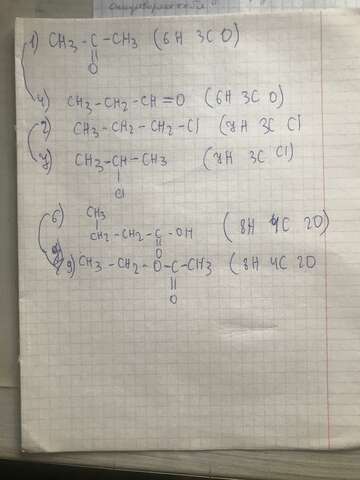 1) CH₃ - C - CH₃ (6H 3C O)
||
O
4) CH₃ - CH₂ - CH = O (6H 3C O)
2) CH₃ - CH₂ - CH₂ - Cl (7H 3C Cl
7) CH₃ - CH - CH₃ (7H 3C Cl)
|
Cl
6) CH₃
|
CH₂ - CH₂ - C - OH (8H 4C 2O)
||
O
9) CH₃ - CH₂ - O - C - CH₃ (8H 4C 2O
||
O